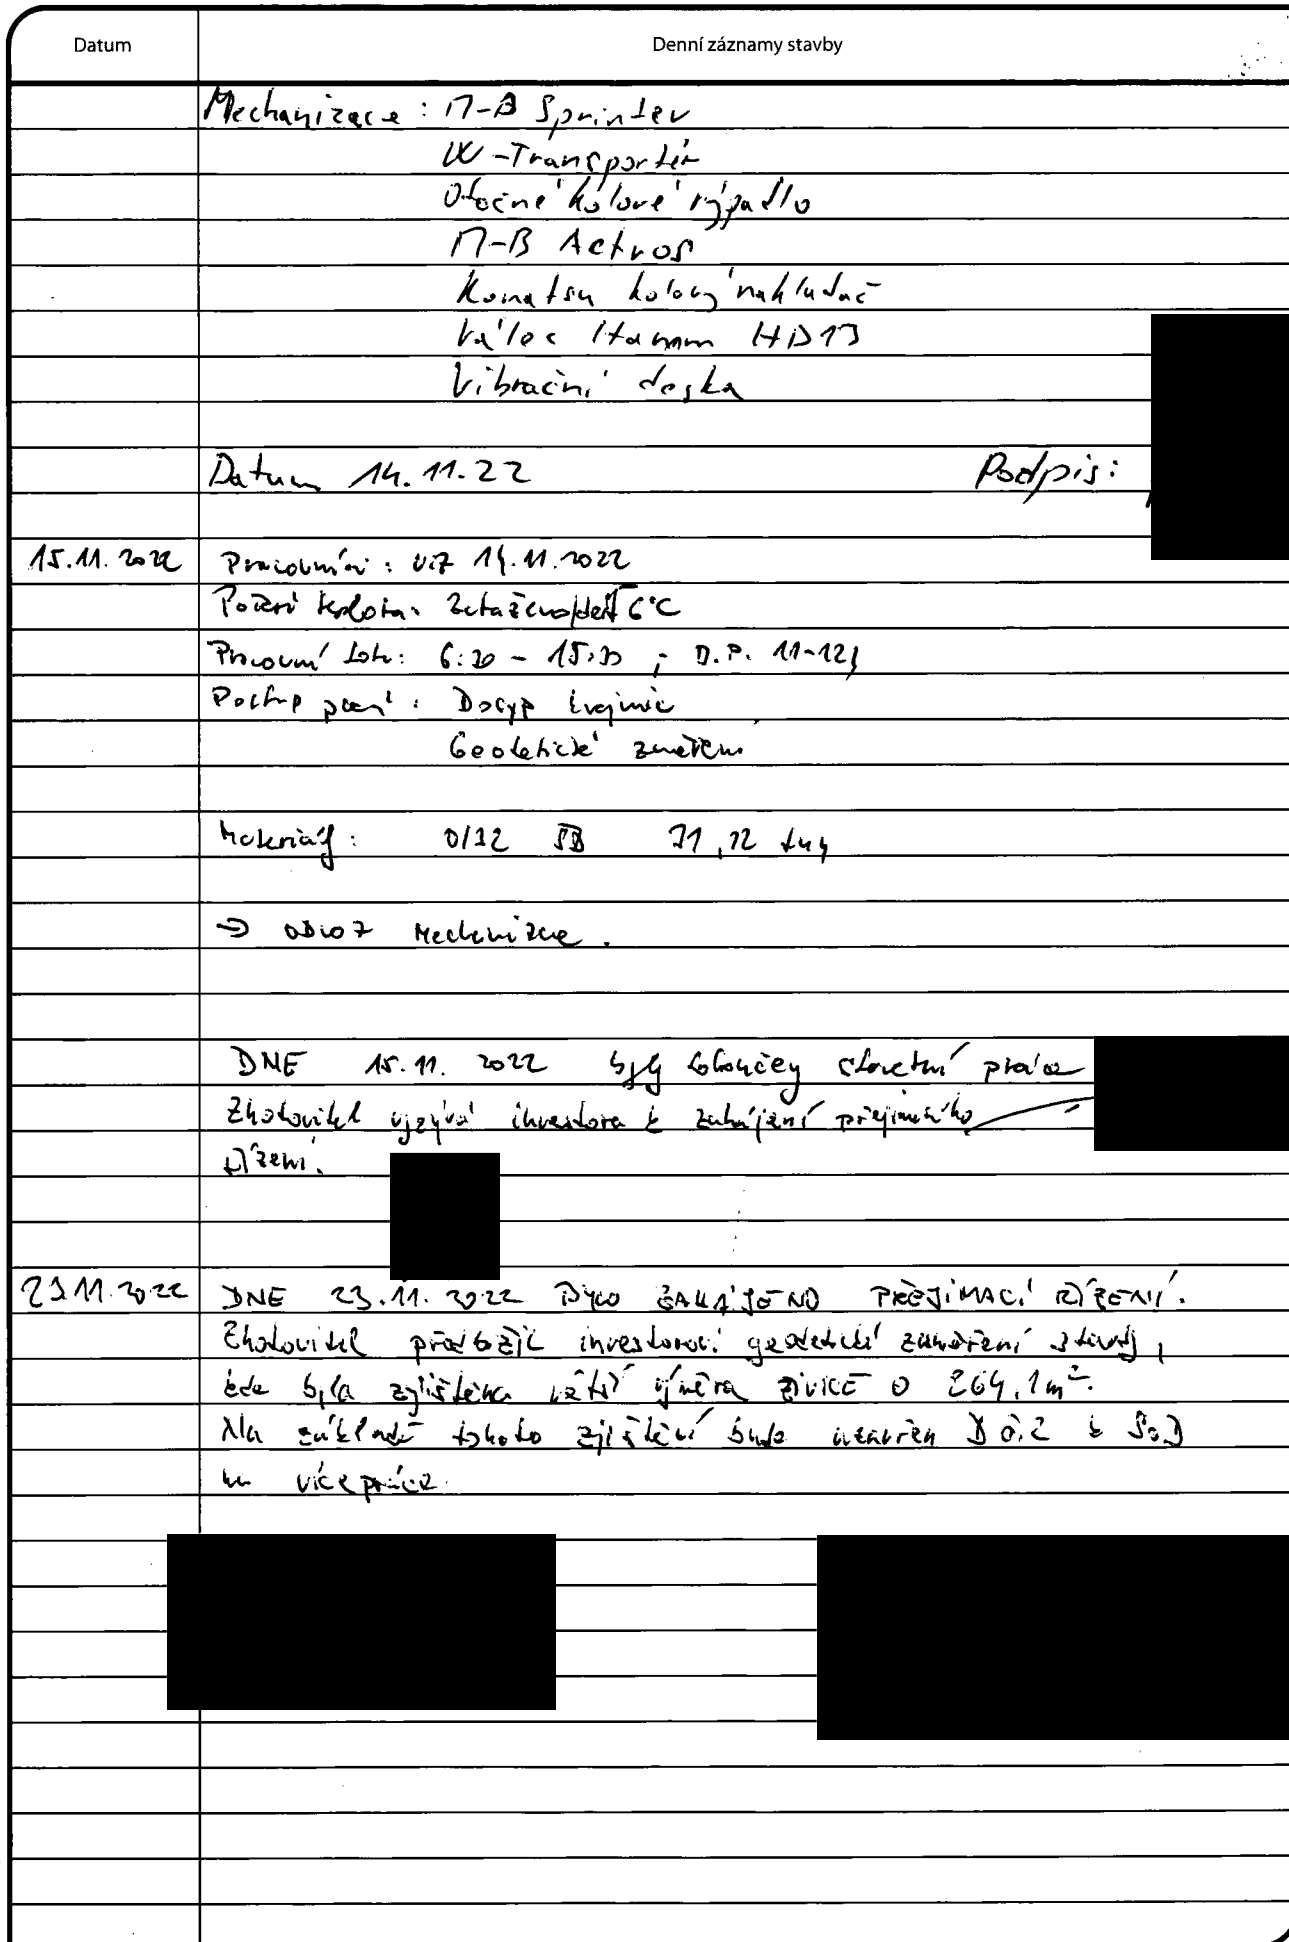 Datum Denní záznamy stavby
Mechanizace: M-B Sprinter
VW-Transportér
Otočné kolové rýpadlo
M-B Actros
Komatsu kolový nakladač
Válec Hamm HD13
Vibrační deska
Datum 14.11.22 Podpis:
15.11.2022 Pracovníci: viz 14.11.2022
Počasí teplota: Zataženo/déšť 6°C
Pracovní doba: 6:30 - 15:30 ; O.P. 11-12
Postup prací: Dosyp krajnic
Geodetické změření
Materiály: 0/32 ŠD 31,12 tuny
→ odvoz mechanizace.
DNE 15.11.2022 byly dokončeny stavební práce
Zhotovitel vyzývá investora k zahájení přejímacího
řízení.
23.11.2022 DNE 23.11.2022 BYLO ZAHÁJENO PŘEJÍMACÍ ŘÍZENÍ.
Zhotovitel předložil investorovi geodetické zaměření stavby,
kde byla zjištěna větší výměra živice o 264,1m².
Na základě tohoto zjištění bude uzavřen D č.2 k SoD
na vícepráce.